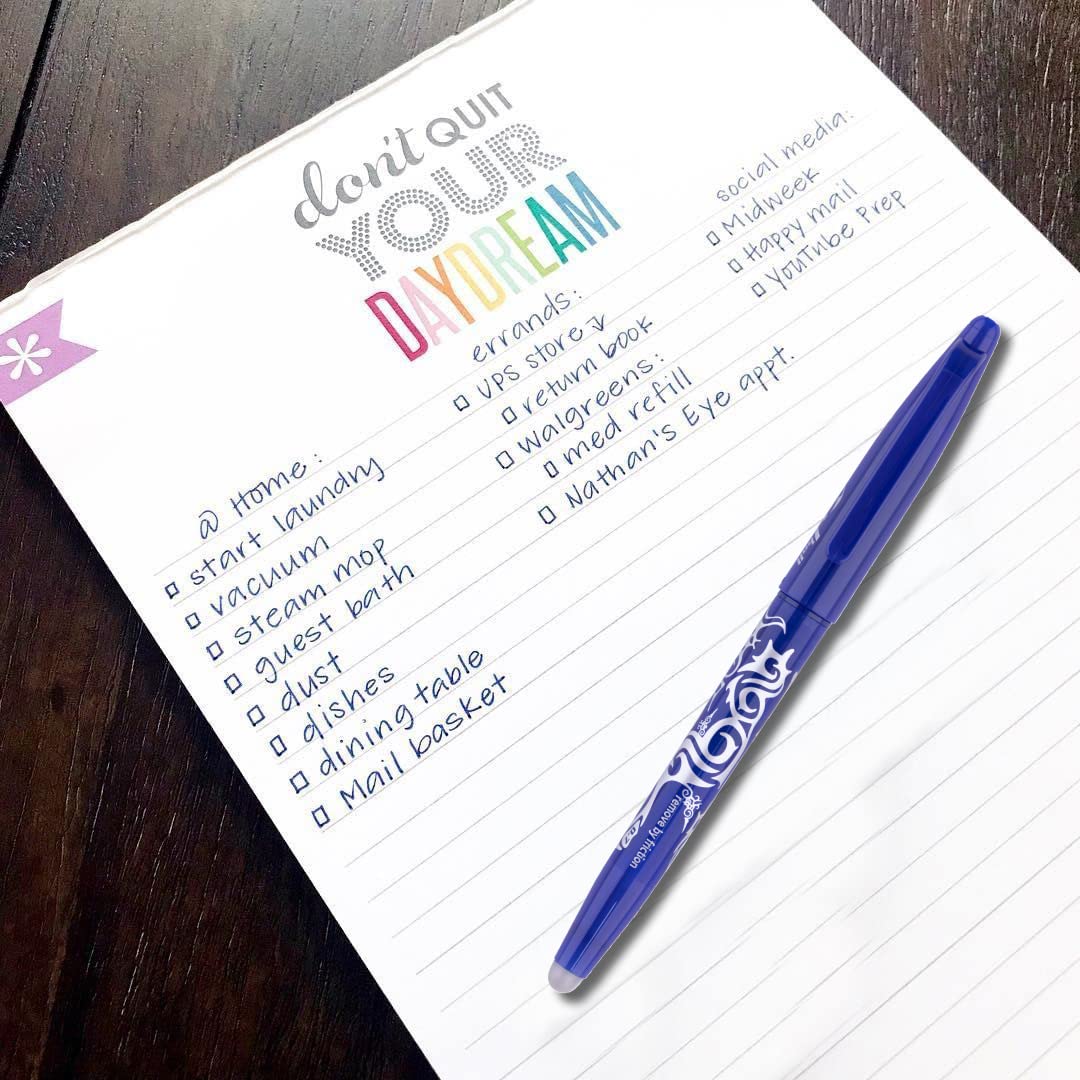 don't QUIT
YOUR
DAYDREAM
@ Home:
□ start laundry
□ vacuum
□ steam mop
□ guest bath
□ dust
□ dishes
□ dining table
□ Mail basket
errands:
□ UPS store
□ return book
□ Walgreens:
□ med refill
□ Nathan's Eye appt.
social media:
□ Midweek
□ Happy mail
□ YouTube Prep
remove by friction